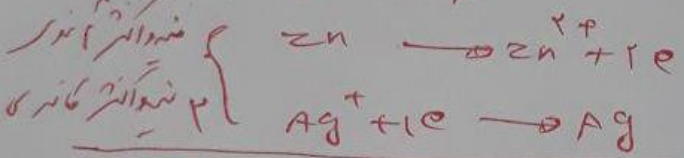 نیم‌واکنش آندی { Zn → Zn²⁺ + ۲e
نیم‌واکنش کاتدی { Ag⁺ + ۱e → Ag